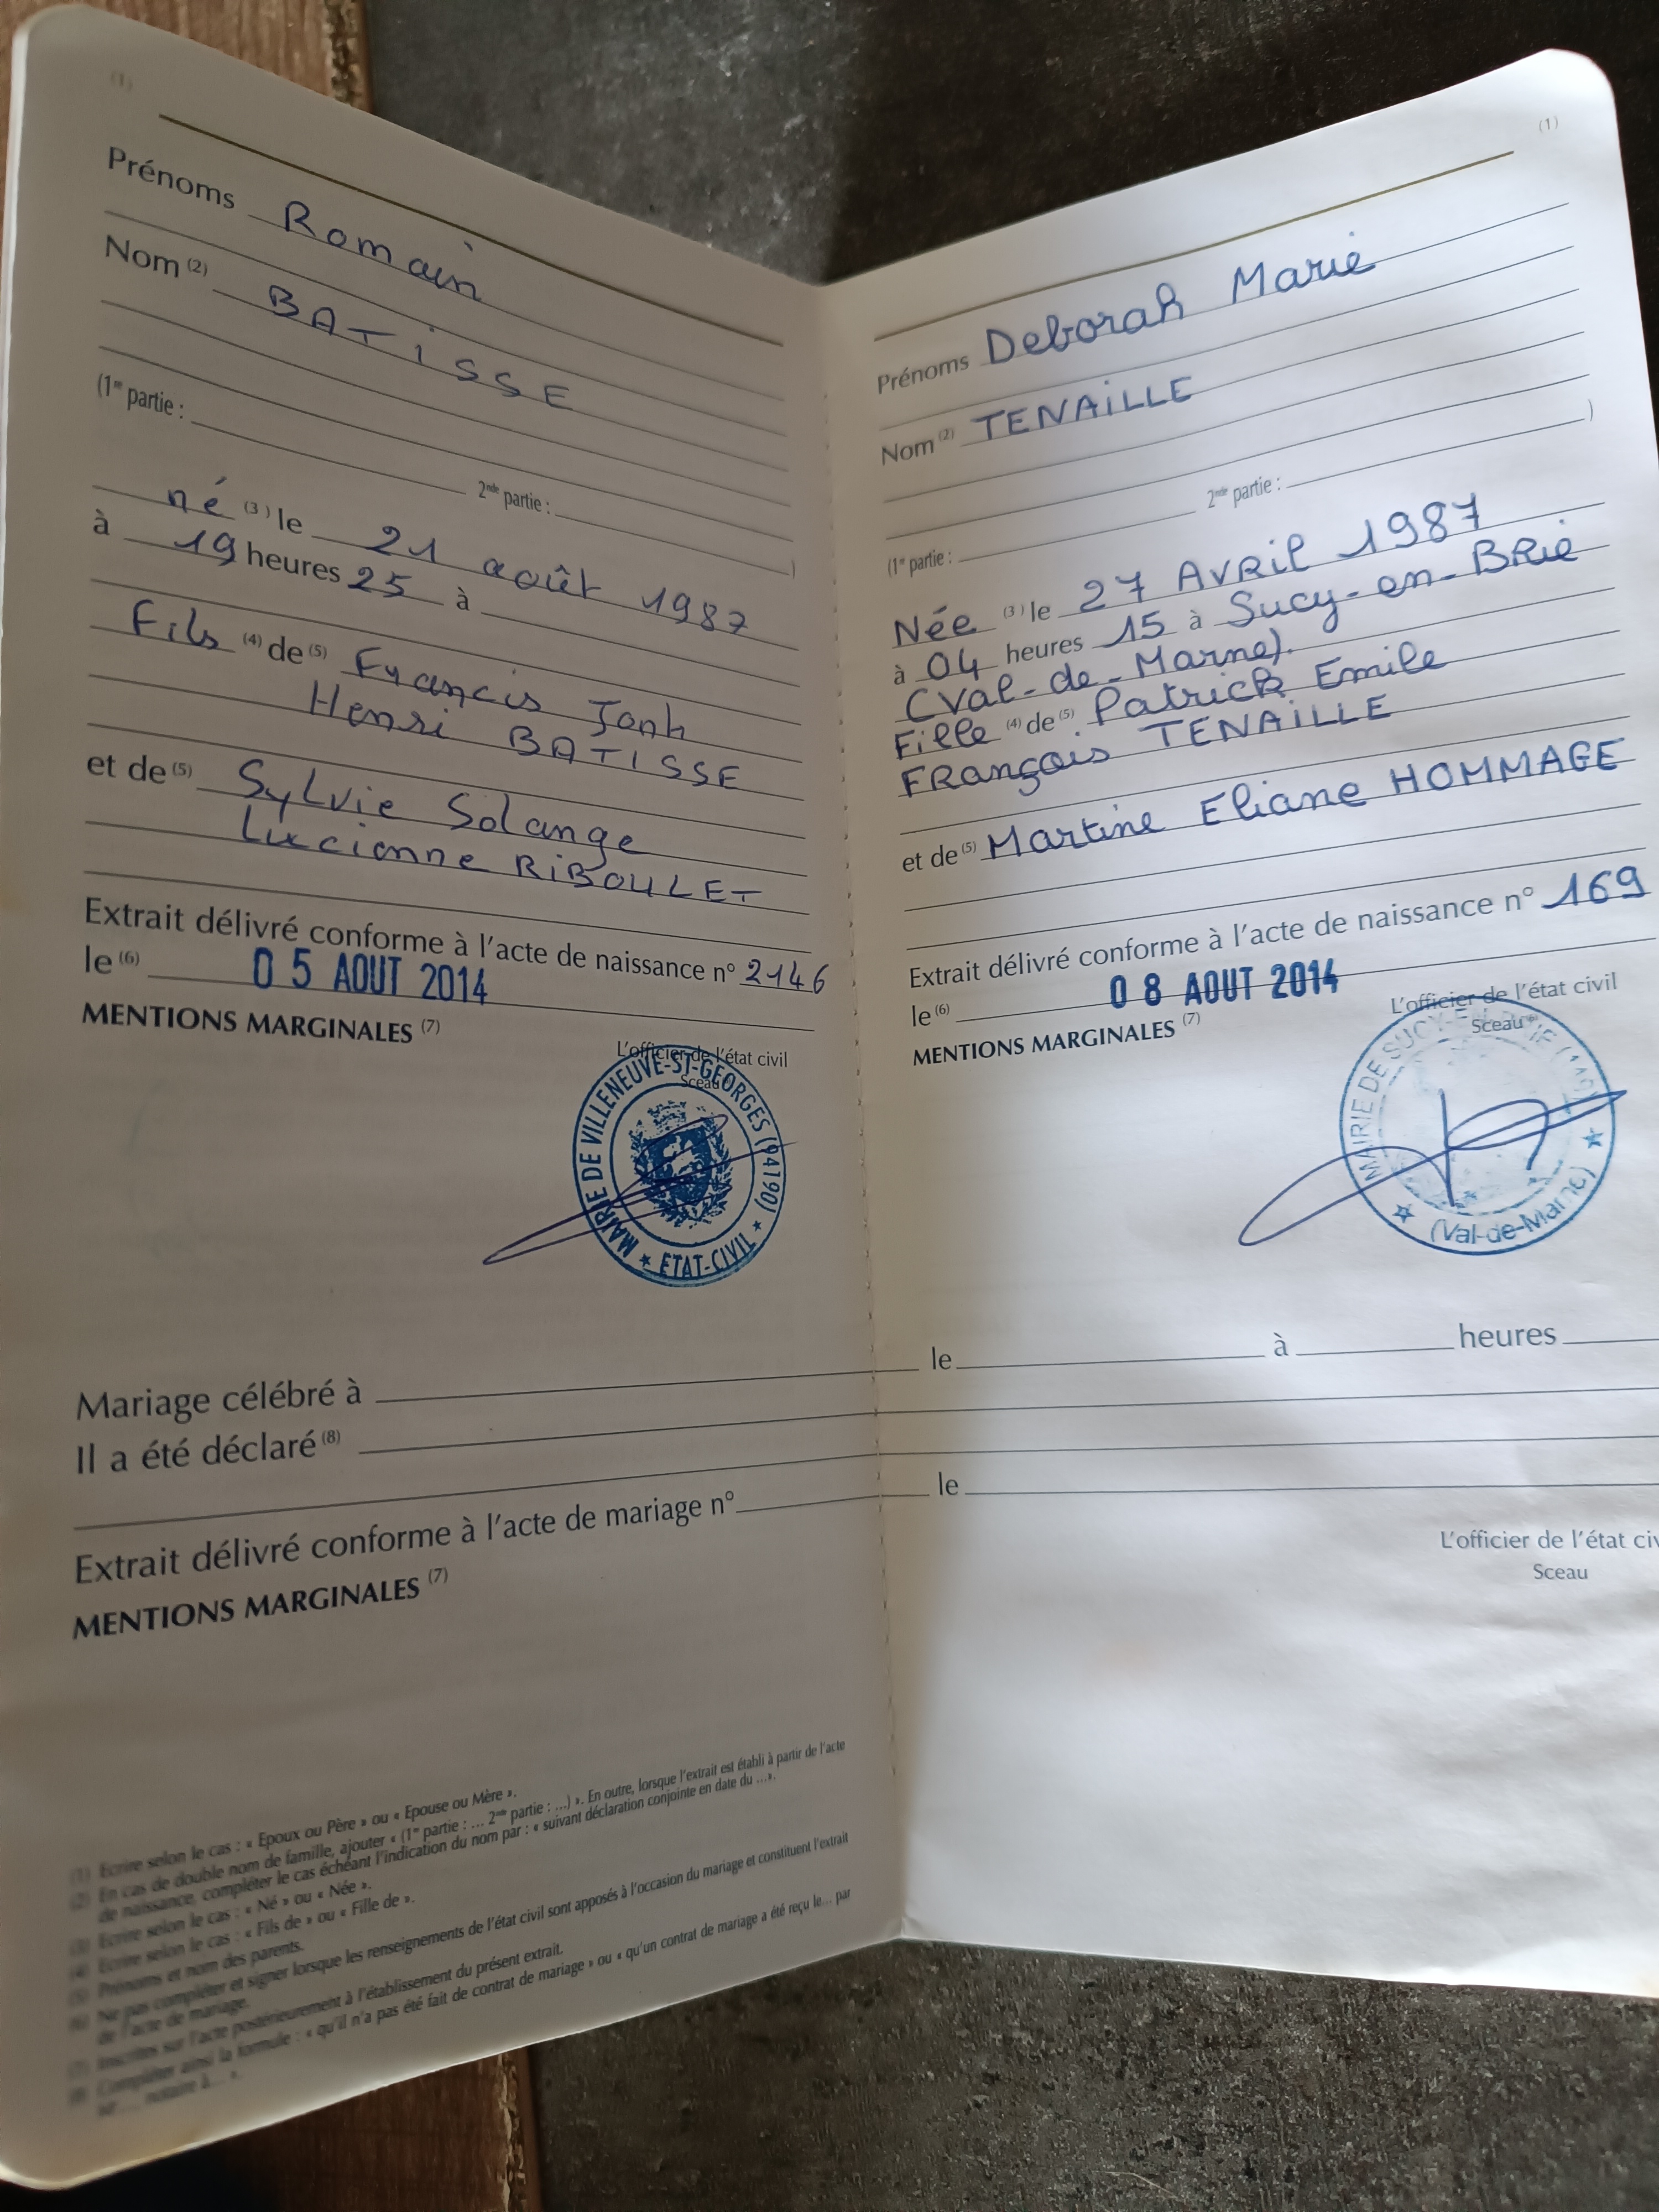 (1)
Prénoms Romain
Nom (2) BATISSE
(1re partie :
2nde partie : )
né (3) le 21 août 1987
à 19 heures 25 à
Fils (4) de (5) Francis Jonh
Henri BATISSE
et de (5) Sylvie Solange
Lucienne RIBOULET
Extrait délivré conforme à l'acte de naissance n° 2146
le (6) 05 AOUT 2014
MENTIONS MARGINALES (7)
L'officier de l'état civil
Sceau
MAIRIE DE VILLENEUVE-ST-GEORGES (94190)
★ ETAT-CIVIL ★
(1)
Prénoms Deborah Marie
Nom (2) TENAILLE
(1re partie : 2nde partie : )
Née (3) le 27 AVRIL 1987
à 04 heures 15 à Sucy-en-BRie
(Val-de-Marne).
Fille (4) de (5) Patrick Emile
FRançois TENAILLE
et de (5) Martine Eliane HOMMAGE
Extrait délivré conforme à l'acte de naissance n° 169
le (6) 08 AOUT 2014
MENTIONS MARGINALES (7)
L'officier de l'état civil
Sceau (6)
MAIRIE DE SUCY-EN-BRIE
★ (Val-de-Marne) ★
Mariage célébré à le à heures
Il a été déclaré (8)
Extrait délivré conforme à l'acte de mariage n° le
MENTIONS MARGINALES (7)
L'officier de l'état civ
Sceau
(1) Ecrire selon le cas : « Epoux ou Père » ou « Epouse ou Mère ».
(2) En cas de double nom de famille, ajouter « (1re partie : ... 2nde partie : ...) ». En outre, lorsque l'extrait est établi à partir de l'acte
de naissance, compléter le cas échéant l'indication du nom par : « suivant déclaration conjointe en date du ...».
(3) Ecrire selon le cas : « Né » ou « Née ».
(4) Ecrire selon le cas : « Fils de » ou « Fille de ».
(5) Prénoms et nom des parents.
(6) Ne pas compléter et signer lorsque les renseignements de l'état civil sont apposés à l'occasion du mariage et constituent l'extrait
de l'acte de mariage.
(7) Inscrites sur l'acte postérieurement à l'établissement du présent extrait.
(8) Compléter ainsi la formule : « qu'il n'a pas été fait de contrat de mariage » ou « qu'un contrat de mariage a été reçu le... par
notaire à... ».